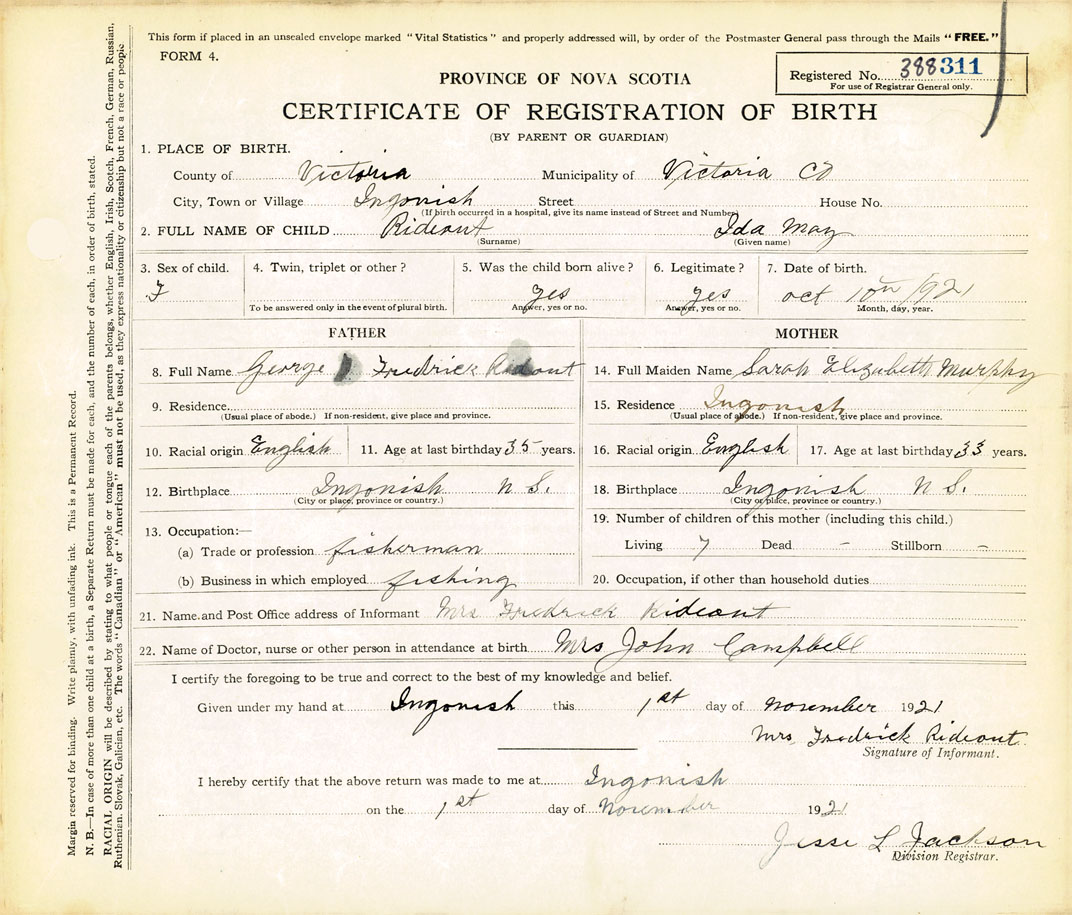 This form if placed in an unsealed envelope marked "Vital Statistics" and properly addressed will, by order of the Postmaster General pass through the Mails "FREE."
FORM 4.
Registered No. 388311
For use of Registrar General only.
PROVINCE OF NOVA SCOTIA
CERTIFICATE OF REGISTRATION OF BIRTH
(BY PARENT OR GUARDIAN)
1. PLACE OF BIRTH.
County of Victoria Municipality of Victoria Co
City, Town or Village Ingonish Street House No.
(If birth occurred in a hospital, give its name instead of Street and Number)
2. FULL NAME OF CHILD Rideout Ida May
(Surname) (Given name)
3. Sex of child. 4. Twin, triplet or other? 5. Was the child born alive? 6. Legitimate? 7. Date of birth.
F yes yes oct 10th 1921
To be answered only in the event of plural birth. Answer, yes or no. Answer, yes or no. Month, day, year.
FATHER
8. Full Name George Fredrick Rideout
9. Residence
(Usual place of abode.) If non-resident, give place and province.
10. Racial origin English 11. Age at last birthday 35 years.
12. Birthplace Ingonish N S.
(City or place, province or country.)
13. Occupation:—
(a) Trade or profession fisherman
(b) Business in which employed fishing
MOTHER
14. Full Maiden Name Sarah Elizabeth Murphy
15. Residence Ingonish
(Usual place of abode.) If non-resident, give place and province.
16. Racial origin English 17. Age at last birthday 33 years.
18. Birthplace Ingonish N S.
(City or place, province or country.)
19. Number of children of this mother (including this child.)
Living 7 Dead - Stillborn -
20. Occupation, if other than household duties
21. Name and Post Office address of Informant Mrs Fredrick Rideout
22. Name of Doctor, nurse or other person in attendance at birth Mrs John Campbell
I certify the foregoing to be true and correct to the best of my knowledge and belief.
Given under my hand at Ingonish this 1st day of November 1921
Mrs Fredrick Rideout
Signature of Informant.
I hereby certify that the above return was made to me at Ingonish
on the 1st day of November 1921
Jesse L Jackson
Division Registrar.
Margin reserved for binding. Write plainly, with unfading ink. This is a Permanent Record.
N. B.—In case of more than one child at a birth, a Separate Return must be made for each, and the number of each, in order of birth, stated.
RACIAL ORIGIN will be described by stating to what people or tongue each of the parents belongs, whether English, Irish, Scotch, French, German, Russian,
Ruthenian, Slovak, Galician, etc. The words "Canadian" or "American" must not be used, as they express nationality or citizenship but not a race or people